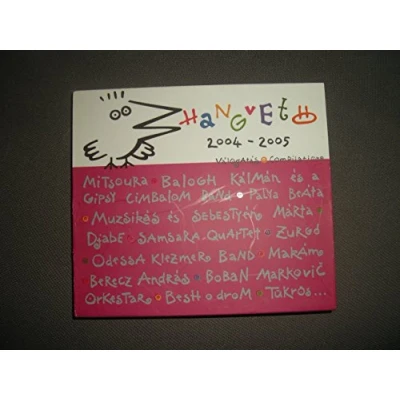 HANGVETŐ
2004 - 2005
Válogatás • Compilations
Mitsoura • Balogh Kálmán és a
Gipsy Cimbalom Band • Palya Beáta
• Muzsikás és Sebestyén Márta •
Djabe • Samsara Quartet • Zurgó
• Odessa Klezmer Band • Makám •
Berecz András • Boban Markovič
Orkestar • Besh o drom • Tükrös...